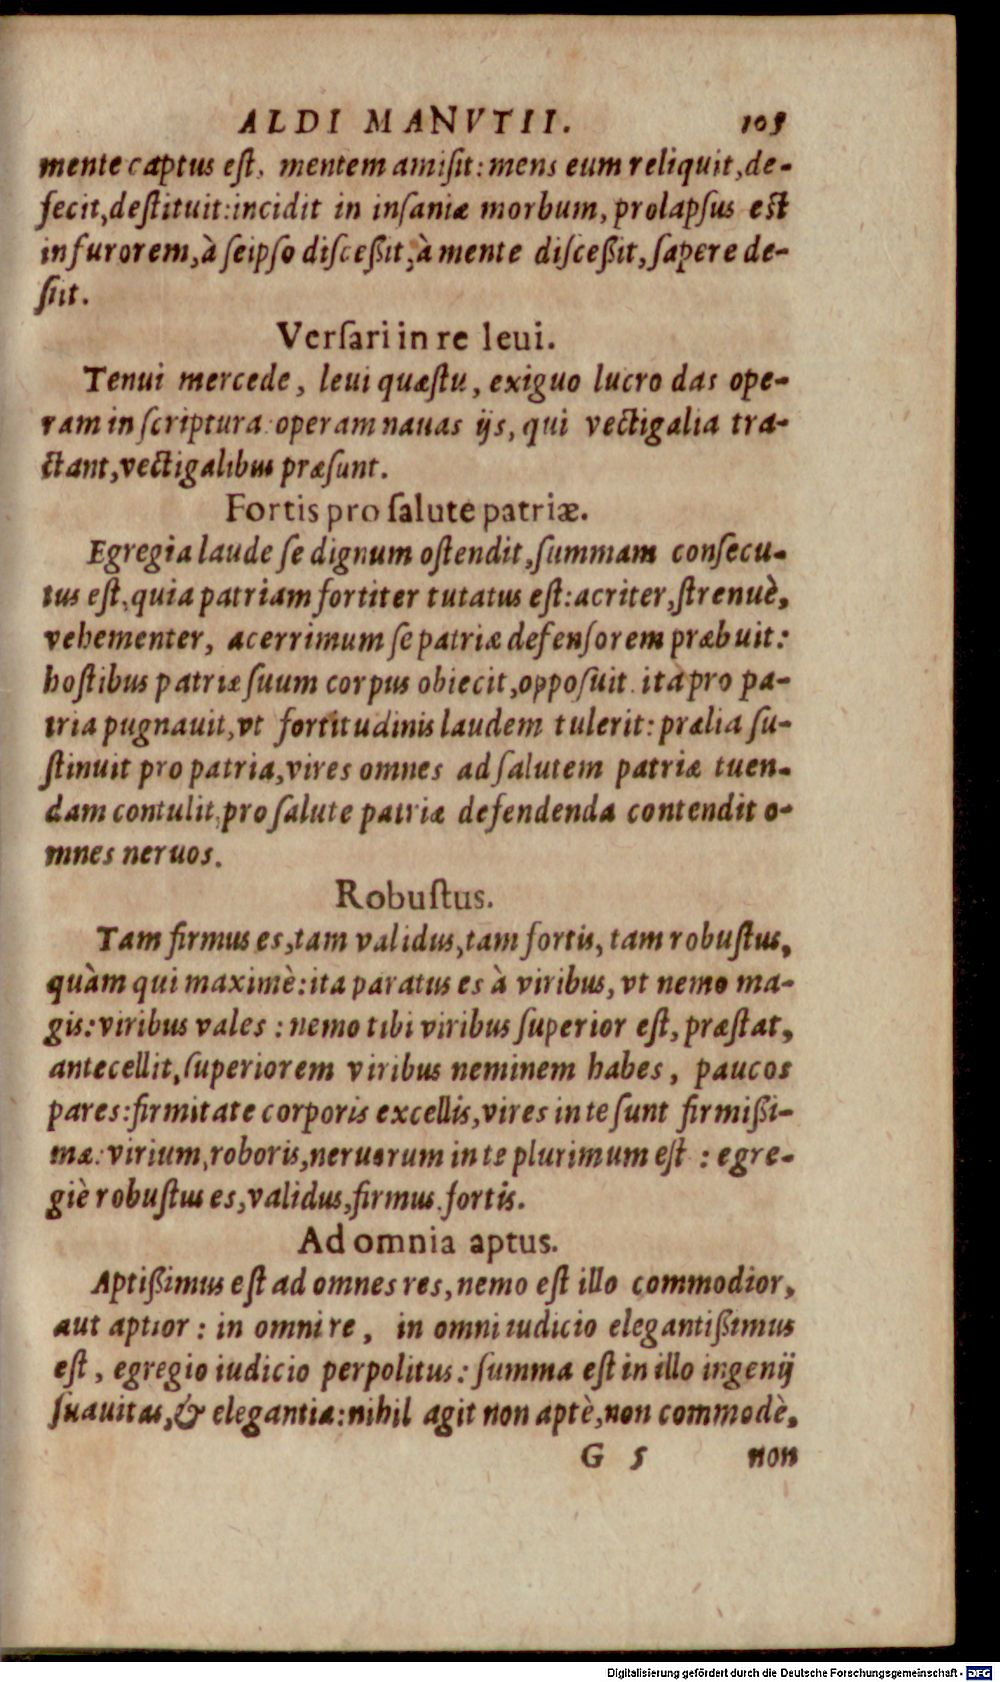 ALDI MANVTII. 105
mente captus eſt, mentem amiſit: mens eum reliquit, de-
fecit, deſtituit: incidit in inſaniæ morbum, prolapſus est
in furorem, à ſeipſo diſceßit, à mente diſceßit, ſapere de-
ſiit.
Verſari in re leui.
Tenui mercede, leui quæſtu, exiguo lucro das ope-
ram in ſcriptura: operam nauas ijs, qui vectigalia tra-
ctant, vectigalibus præſunt.
Fortis pro ſalute patriæ.
Egregia laude ſe dignum oſtendit, ſummam conſecu-
tus eſt, quia patriam fortiter tutatus eſt: acriter, ſtrenuè,
vehementer, acerrimum ſe patriæ defenſorem præbuit:
hoſtibus patriæ ſuum corpus obiecit, oppoſuit. ita pro pa-
tria pugnauit, vt fortitudinis laudem tulerit: prælia ſu-
ſtinuit pro patria, vires omnes ad ſalutem patriæ tuen-
dam contulit, pro ſalute patriæ defendenda contendit o-
mnes neruos.
Robuſtus.
Tam firmus es, tam validus, tam fortis, tam robuſtus,
quàm qui maximè: ita paratus es à viribus, vt nemo ma-
gis: viribus vales: nemo tibi viribus ſuperior eſt, præſtat,
antecellit, ſuperiorem viribus neminem habes, paucos
pares: firmitate corporis excellis, vires in te ſunt firmißi-
mæ: virium, roboris, neruorum in te plurimum eſt: egre-
giè robuſtus es, validus, firmus. fortis.
Ad omnia aptus.
Aptißimus eſt ad omnes res, nemo eſt illo commodior,
aut aptior: in omni re, in omni iudicio elegantißimus
eſt, egregio iudicio perpolitus: ſumma eſt in illo ingenij
ſuauitas, & elegantia: nihil agit non aptè, non commodè,
G 5 non
Digitalisierung gefördert durch die Deutsche Forschungsgemeinschaft - DFG